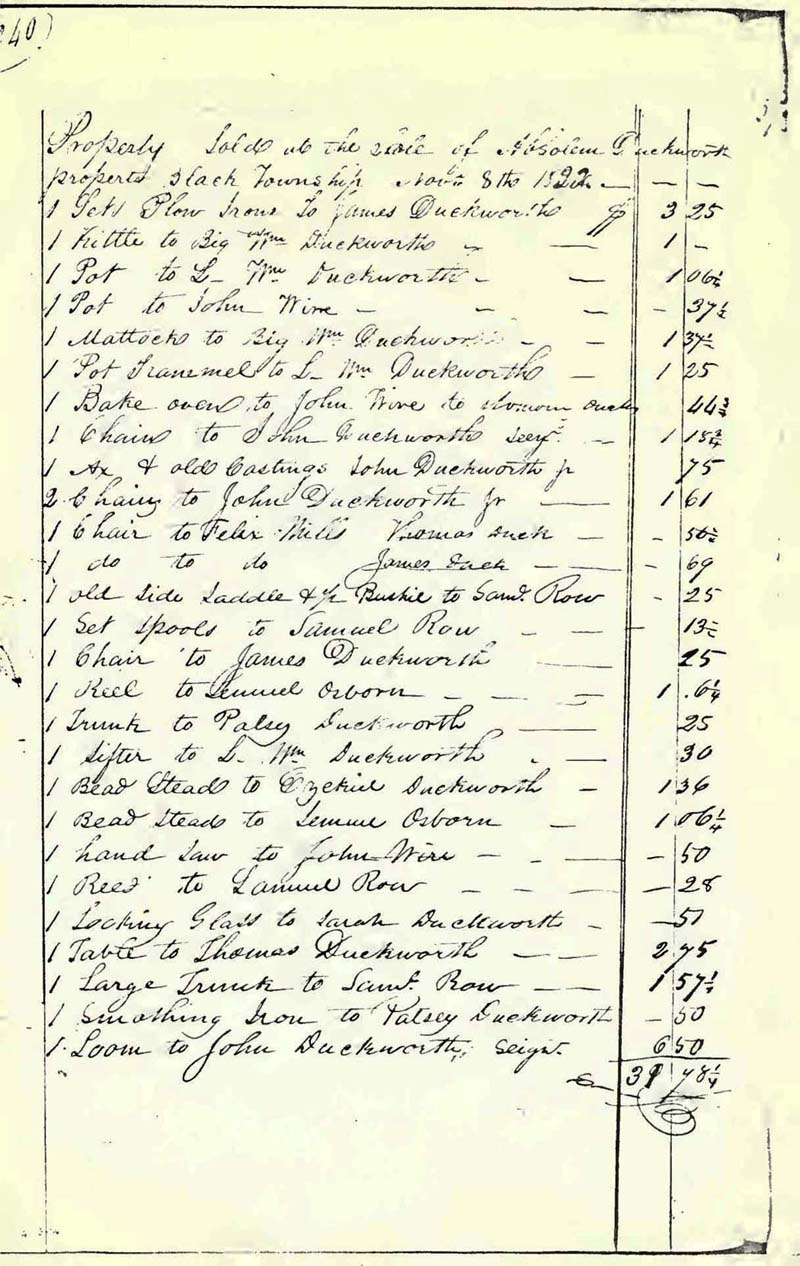 240)
Property Sold at the Sale of Absolem Duckworth
property Black Township Novr 8th 1822 — — —
1 Sets Plow Irons to James Duckworth $ 3 25
1 Kittle to Big Wm Duckworth - — 1 -
1 Pot to L- Wm Duckworth - — 1 06¼
1 Pot to John Wire - - - - 37½
1 Mattock to Big Wm Duckworth - - 1 37½
1 Pot Trammel to L- Wm Duckworth — 1 25
1 Bake oven to John Wire to 44¾
1 Chair to John Duckworth - 1 18¾
1 Ax & old Castings John Duckworth jr 75
2 Chairs to John Duckworth Jr — 1 61
1 Chair to Felix Mills Thomas Duck — - 56½
1 do to do James Duck - — - 69
1 old Side Saddle & Buskie to Saml. Row - 25
1 Set Spools to Samuel Row - — 13½
1 Chair to James Duckworth — 25
1 Reel to Lemuel Osborn - - - 1 .6¼
1 Trunk to Patsy Duckworth — 25
1 Sifter to L- Wm Duckworth . — 30
1 Bead Stead to Ezekiel Duckworth - 1 36
1 Bead Stead to Lemuel Osborn — 1 06¼
1 hand Saw to John Wire - - — - 50
1 Reed to Samuel Row - - — — 28
1 Looking Glass to Sarah Duckworth - — 51
1 Table to Thomas Duckworth — — 2 75
1 Large Trunk to Saml. Row — — 1 57½
1 Smothing Iron to Patsey Duckworth — 50
1 Loom to John Duckworth, Seignr. 6 50
31 78¼